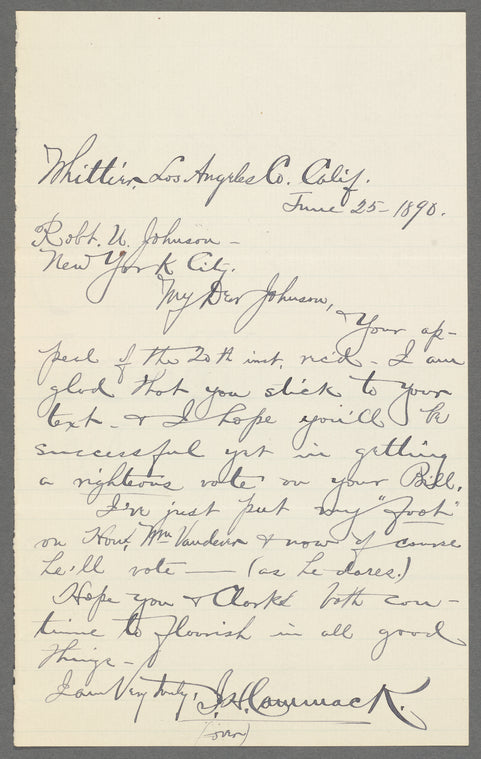 Whittier, Los Angeles Co. Calif.
June 25 - 1890.
Robt. U. Johnson -
New York City.
My Dear Johnson,
Your ap-
peal of the 20th inst. rec'd - I am
glad that you stick to your
text - & I hope you'll be
successful yet in getting
a righteous vote on your Bill.
I've just put my "foot"
on Hon. Wm Vandever & now of course
he'll vote — (as he dares.)
Hope you & Clarke both con-
tinue to flourish in all good
things -
I am Very truly, J. H. Cammack.
(over)